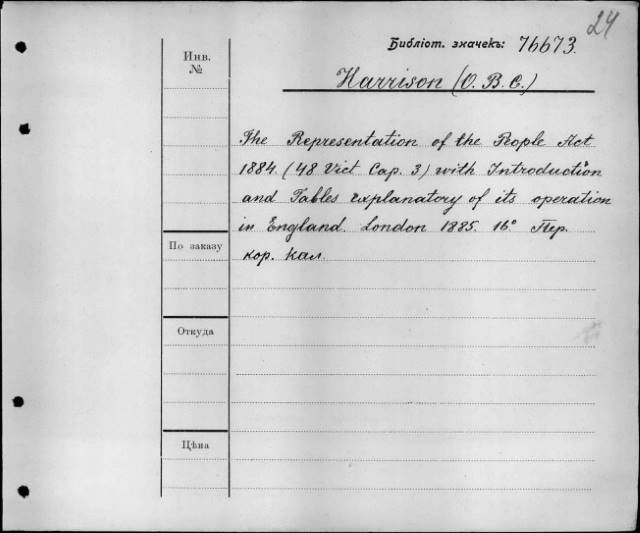 24
Библіот. значекъ: 76673.
Инв.
№
Harrison (O. B. C.)
The Representation of the People Act
1884. (48 Vict Cap. 3) with Introduction
and Tables explanatory of its operation
in England. London 1885. 16° Пер.
кор. кал.
По заказу
Откуда
Цѣна